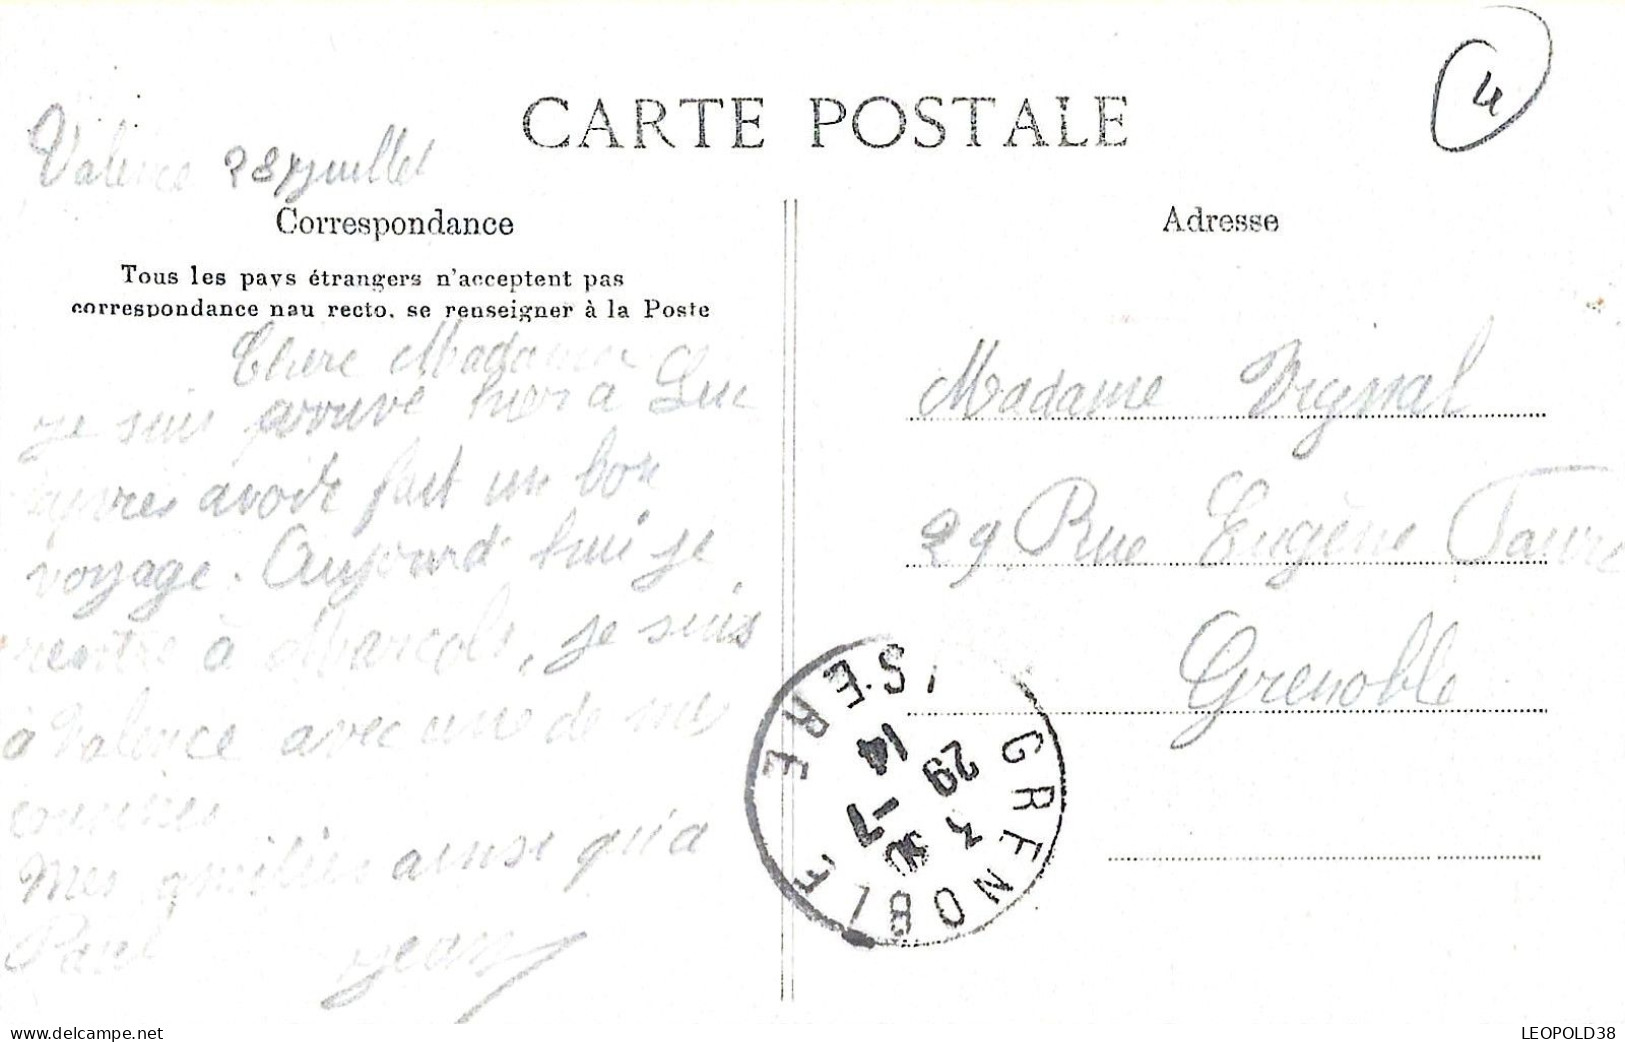 4
CARTE POSTALE
Valence 28 juillet
Correspondance
Tous les pays étrangers n'acceptent pas
correspondance nau recto, se renseigner à la Poste
Chere Madame
je suis arrivé hier a Luc
apres avoir fait un bon
voyage. Aujourd'hui je
rentre à Marcols, je suis
à Valence avec une de mes
cousines
Mes amitiés ainsi qu'a
Paul
Jean
Adresse
Madame Vignal
29 Rue Eugène Faure
Grenoble
GRENOBLE
ISERE
3 30
29 -7
14
www.delcampe.net
LEOPOLD38